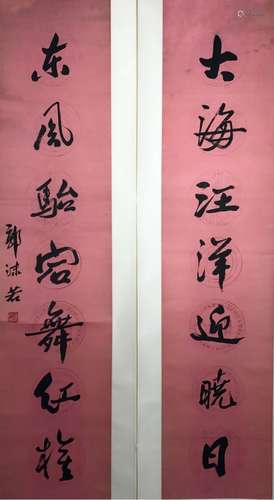 大海汪洋迎晓日
东風駘宕舞红旗
郭沫若